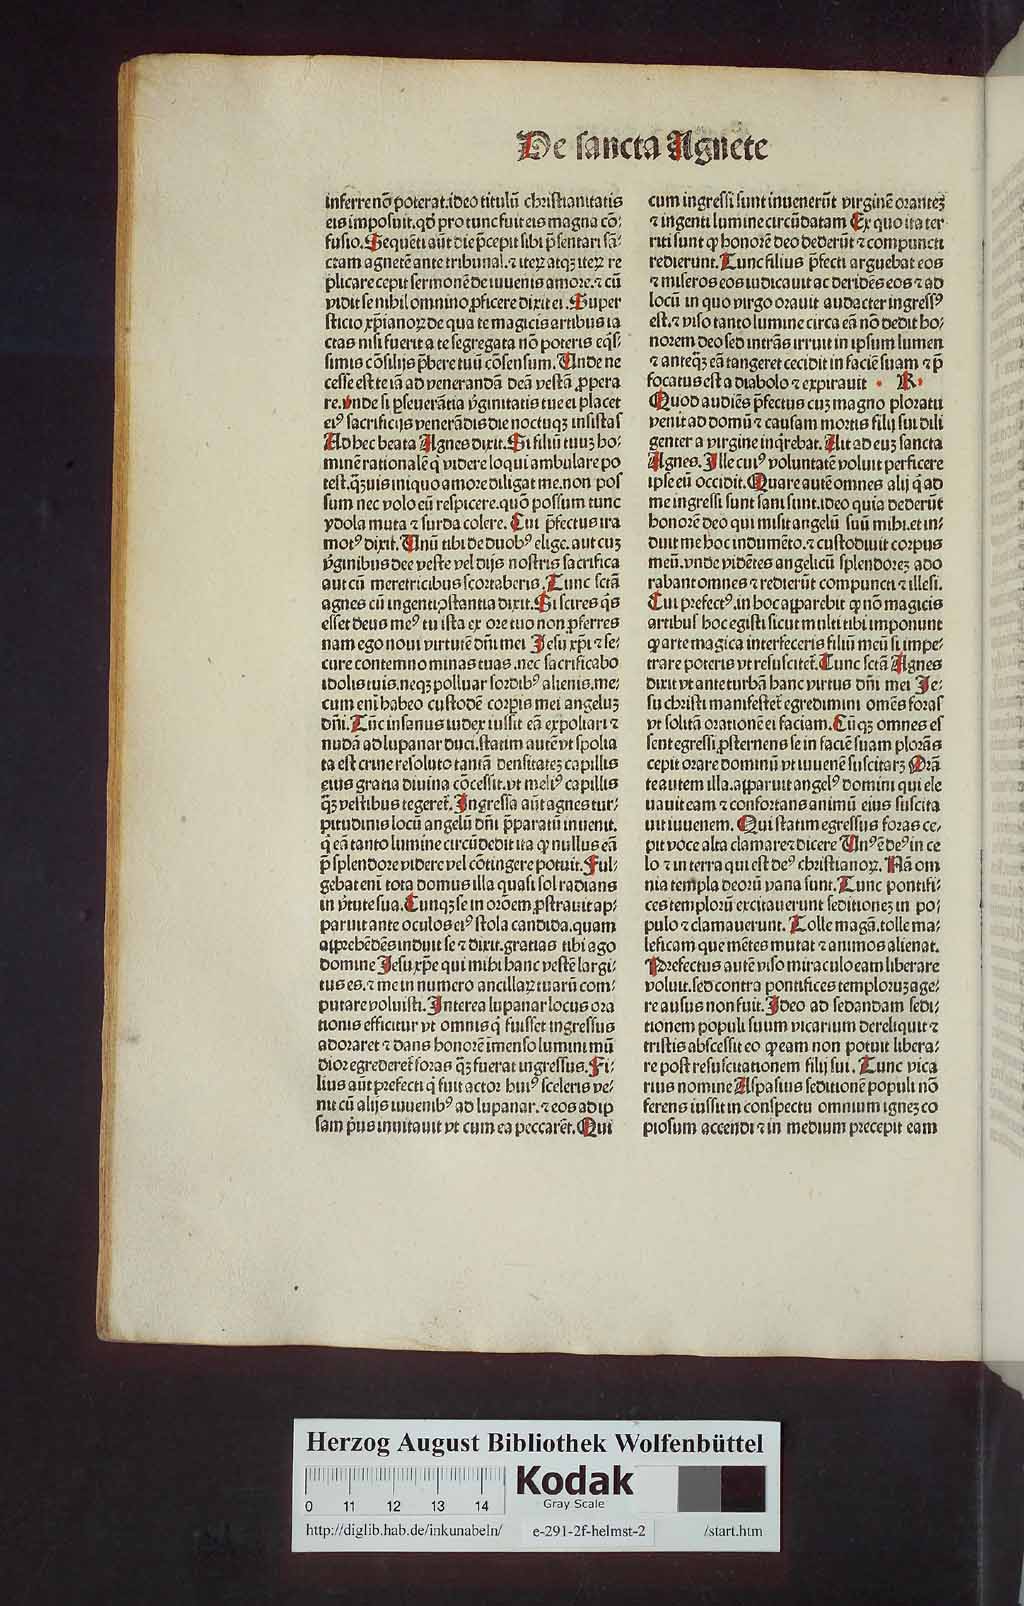 De sancta Agnete
inferre nō poterat. ideo titulū christianitatis
eis imposuit. qd̄ pro tunc fuit eis magna cō⸗
fusio. Sequēti aūt die p̄cepit sibi p̄sentari sā⸗
ctam agnetē ante tribunal. ⁊ iteꝝ atqꝫ iteꝝ re
plicare cepit sermonē de iuuenis amore. ⁊ cū
vidit se nihil omnino ꝓficere dixit ei. Super
sticio xp̄ianoꝝ de qua te magicis artibus ia
ctas nisi fuerit a te segregata nō poteris eq̄s⸗
simis cōsilijs p̄bere tuū cōsensum. Unde ne
cesse est te iā ad venerandā deā vestā ꝓpera
re. vnde si ꝑseuerātia v̓ginitatis tue ei placet
eiꝰ sacrificijs venerādis die noctuqꝫ insistas
Ad hec beata Agnes dixit. Si filiū tuuꝫ ho⸗
minē rationalē q̇ videre loqui ambulare po
test. q̄ꝫuis iniquo amore diligat me. non pos
sum nec volo eū respicere. quō possum tunc
ydola muta ⁊ surda colere. Cui p̄fectus ira
motꝰ dixit. Unū tibi de duobꝰ elige. aut cuꝫ
v̓ginibus dee veste vel dijs nostris sacrifica
aut cū meretricibus scortaberis. Tunc sctā
agnes cū ingenti ꝯstantia dixit. Si scires q̇s
esset deus meꝰ tu ista ex ore tuo non ꝓferres
nam ego noui virtutē dn̄i mei Jesu xp̄i ⁊ se⸗
cure contemno minas tuas. nec sacrificabo
idolis tuis. neqꝫ polluar sordibꝰ alienis. me⸗
cum eni habeo custodē corꝑis mei angeluꝫ
dn̄i. Tūc insanus iudex iussit eā expoliari ⁊
nudā ad lupanar duci. statim autē vt spolia
ta est crine resoluto tantā densitateꝫ capillis
eius gratia diuina cōcessit. vt meliꝰ capillis
q̄ꝫ vestibus tegeret̄. Ingressa aūt agnes tur⸗
pitudinis locū angelū dn̄i p̄paratū inuenit.
q̇ eā tanto lumine circūdedit ita ꝙ nullus eā
p̄ splendore videre vel cōtingere potuit. Ful⸗
gebat eni tota domus illa quasi sol radians
in v̓tute sua. Cunqꝫ se in orōem ꝓstrauit ap⸗
paruit ante oculos eiꝰ stola candida. quam
apprehēdēs induit se ⁊ dixit. gratias tibi ago
domine Jesu xp̄e qui mihi hanc vestē largi⸗
tus es. ⁊ me in numero ancillaꝝ tuarū com⸗
putare voluisti. Interea lupanar locus ora
tionis efficitur vt omnis q̇ fuisset ingressus
adoraret ⁊ dans honorē imēso lumini mū
dior egrederet̄ foras q̄ꝫ fuerat ingressus. Fi⸗
lius aūt prefecti q̇ fuit actor huiꝰ sceleris ve⸗
nit cū alijs iuuenibꝰ ad lupanar. ⁊ eos ad ip
sam p̓us inuitauit vt cum ea peccarēt. Qui
cum ingressi sunt inuenerūt virginē oranteꝫ
⁊ ingenti lumine circūdatam Ex quo ita ter
riti sunt ꝙ honorē deo dederūt ⁊ compuncti
redierunt. Tunc filius p̄fecti arguebat eos
⁊ miseros eos iudicauit ac deridēs eos ⁊ ad
locū in quo virgo orauit audacter ingressꝰ
est. ⁊ viso tanto lumine circa eā nō dedit ho⸗
norem deo sed intrās irruit in ipsum lumen
⁊ anteq̄ꝫ eā tangeret cecidit in faciē suam ⁊ p̄
focatus est a diabolo ⁊ expirauit · R ·
Quod audiēs p̄fectus cuꝫ magno ploratu
venit ad domū ⁊ causam mortis filij sui dili
genter a virgine inq̇rebat. Ait ad euꝫ sancta
Agnes. Ille cuiꝰ voluntatē voluit perficere
ipse eū occidit. Quare autē omnes alij q̇ ad
me ingressi sunt sani sunt. ideo quia dederūt
honorē deo qui misit angelū suū mihi. et in⸗
duit me hoc indumēto. ⁊ custodiuit corpus
meū. vnde vidētes angelicū splendoreꝫ ado
rabant omnes ⁊ redierūt compuncti ⁊ illesi.
Cui prefectꝰ. in hoc apparebit ꝙ nō magicis
artibus hoc egisti sicut multi tibi imponunt
ꝙ arte magica interfeceris filiū meū si impe⸗
trare poteris vt resuscitet̄. Tunc sctā Agnes
dixit vt ante turbā hanc virtus dn̄i mei Je⸗
su christi manifestet̄ egredimini omēs foras
vt solitā orationē ei faciam. Cūqꝫ omnes es
sent egressi ꝓsternens se in faciē suam plorās
cepit orare dominū vt iuuenē suscitaꝝ Orā
te autem illa. apparuit angelꝰ domini qui ele
uauit eam ⁊ confortans animū eius suscita
uit iuuenem. Qui statim egressus foras ce⸗
pit voce alta clamare ⁊ dicere Unꝰ ē deꝰ in ce
lo ⁊ in terra qui est deꝰ christianoꝝ. Nā om
nia templa deorū vana sunt. Tunc pontifi⸗
ces templorū excitauerunt seditioneꝫ in po⸗
pulo ⁊ clamauerunt. Tolle magā. tolle ma⸗
leficam que mētes mutat ⁊ animos alienat.
Prefectus autē viso miraculo eam liberare
voluit. sed contra pontifices temploruꝫ age⸗
re ausus non fuit. Ideo ad sedandam sedi⸗
tionem populi suum vicarium dereliquit ⁊
tristis abscessit eo ꝙ eam non potuit libera⸗
re post resuscitationem filij sui. Tunc vica
rius nomine Aspasius seditionē populi nō
ferens iussit in conspectu omnium igneꝫ co
piosum accendi ⁊ in medium precepit eam
Herzog August Bibliothek Wolfenbüttel
Kodak
Gray Scale
0 11 12 13 14
http://diglib.hab.de/inkunabeln/ e-291-2f-helmst-2 /start.htm